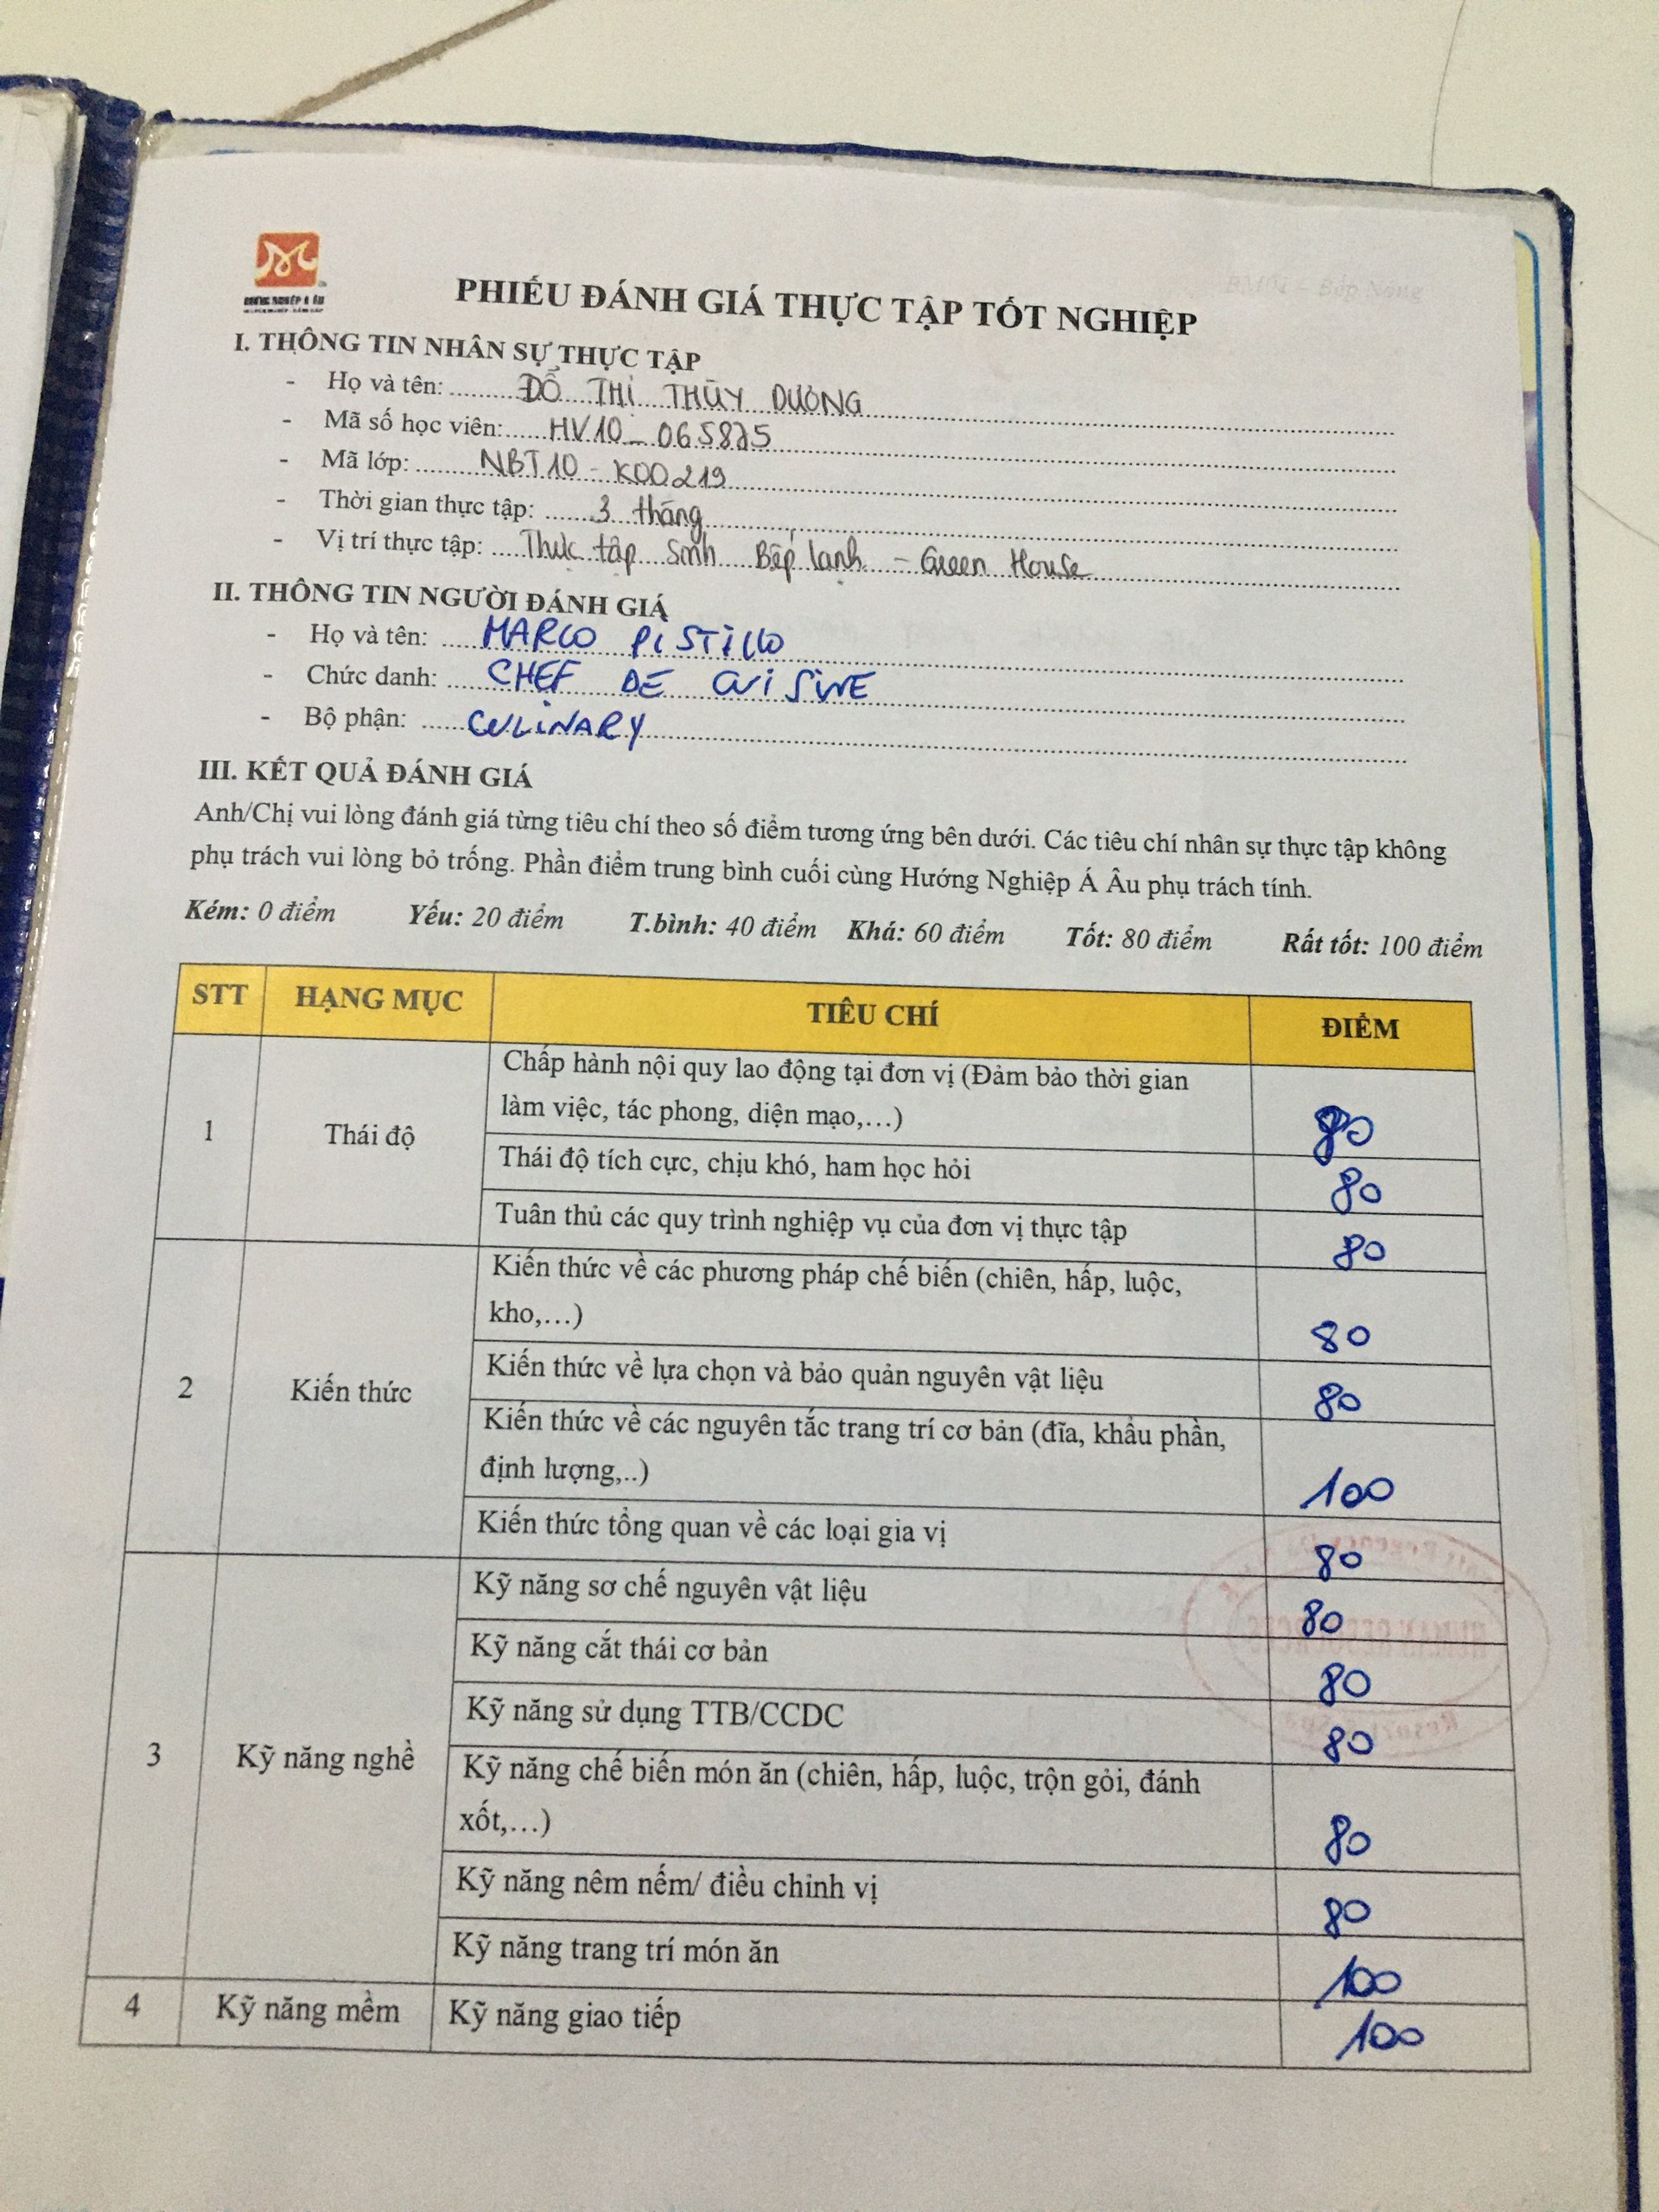 HƯỚNG NGHIỆP Á ÂU
BM01 - Bếp Nóng
PHIẾU ĐÁNH GIÁ THỰC TẬP TỐT NGHIỆP
I. THÔNG TIN NHÂN SỰ THỰC TẬP
- Họ và tên: ĐỖ THỊ THÙY DƯƠNG
- Mã số học viên: HV10-065825
- Mã lớp: NBT10-K00219
- Thời gian thực tập: 3 tháng
- Vị trí thực tập: Thực tập sinh Bếp lạnh - Green House
II. THÔNG TIN NGƯỜI ĐÁNH GIÁ
- Họ và tên: MARCO PISTILLO
- Chức danh: CHEF DE CUISINE
- Bộ phận: CULINARY
III. KẾT QUẢ ĐÁNH GIÁ
Anh/Chị vui lòng đánh giá từng tiêu chí theo số điểm tương ứng bên dưới. Các tiêu chí nhân sự thực tập không
phụ trách vui lòng bỏ trống. Phần điểm trung bình cuối cùng Hướng Nghiệp Á Âu phụ trách tính.
Kém: 0 điểm Yếu: 20 điểm T.bình: 40 điểm Khá: 60 điểm Tốt: 80 điểm Rất tốt: 100 điểm
STT HẠNG MỤC TIÊU CHÍ ĐIỂM
1 Thái độ
Chấp hành nội quy lao động tại đơn vị (Đảm bảo thời gian
làm việc, tác phong, diện mạo,…) 80
Thái độ tích cực, chịu khó, ham học hỏi 80
Tuân thủ các quy trình nghiệp vụ của đơn vị thực tập 80
2 Kiến thức
Kiến thức về các phương pháp chế biến (chiên, hấp, luộc,
kho,…) 80
Kiến thức về lựa chọn và bảo quản nguyên vật liệu 80
Kiến thức về các nguyên tắc trang trí cơ bản (đĩa, khẩu phần,
định lượng,..) 100
Kiến thức tổng quan về các loại gia vị 80
3 Kỹ năng nghề
Kỹ năng sơ chế nguyên vật liệu 80
Kỹ năng cắt thái cơ bản 80
Kỹ năng sử dụng TTB/CCDC 80
Kỹ năng chế biến món ăn (chiên, hấp, luộc, trộn gỏi, đánh
xốt,…) 80
Kỹ năng nêm nếm/ điều chỉnh vị 80
Kỹ năng trang trí món ăn 100
4 Kỹ năng mềm Kỹ năng giao tiếp 100